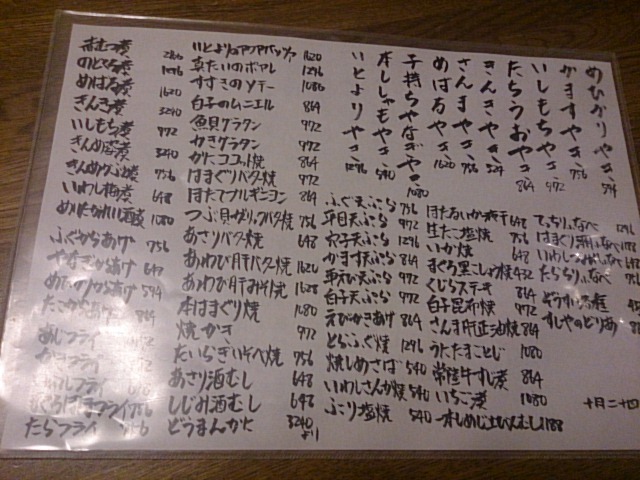 赤むつ煮
のどぐろ煮 1296
めばる煮 1620
きんき煮 3240
いしもち煮 972
3240
756
いわし梅煮 648
1080
ふぐからあげ 756
やなぎからあげ 648
めひかりからあげ 594
たこからあげ 864
あじフライ
かきフライ
たらフライ
1620
真だいのポワレ 1296
すずきのソテー 1080
白子のムニエル 864
魚貝グラタン 972
かきグラタン 972
かにココット焼 864
はまぐりバター焼 972
ほたてブルギニヨン 864
つぶ貝ガーリックバター焼 756
あさりバター焼 648
あわび肝バター焼 1620
あわび肝みそ焼 1628
本はまぐり焼 1080
焼かき 972
たいらぎいそべ焼 756
あさり酒むし 648
しじみ酒むし 648
どうまんかに 3240より
めひかりやき 594
かますやき 756
いしもちやき 972
たちうおやき 864
きんきやき 324
さんまやき 756
めばるやき 1620
子持ちやなぎやき 1080
本ししゃもやき 540
いとよりやき 1296
ふぐ天ぷら 756
平目天ぷら 972
穴子天ぷら 1296
かます天ぷら 864
972
白子天ぷら 972
えびかきあげ 864
とらふぐ焼 1296
焼しめさば 540
いわしさんが焼 540
ぶり塩焼 540
ほたるいか素干 648
生たこ塩焼 756
いか焼 648
まぐろ黒こしょう焼 432
くじらステーキ 864
白子昆布焼 972
さんま肝正油焼 864
うにたまとじ 1080
常陸牛すじ煮 864
いちご煮 1080
一本しめじ土びんむし 1188
てっちりなべ 1296
はまぐり
いわし
たらちりなべ
すしやのどりあ
十月二十四